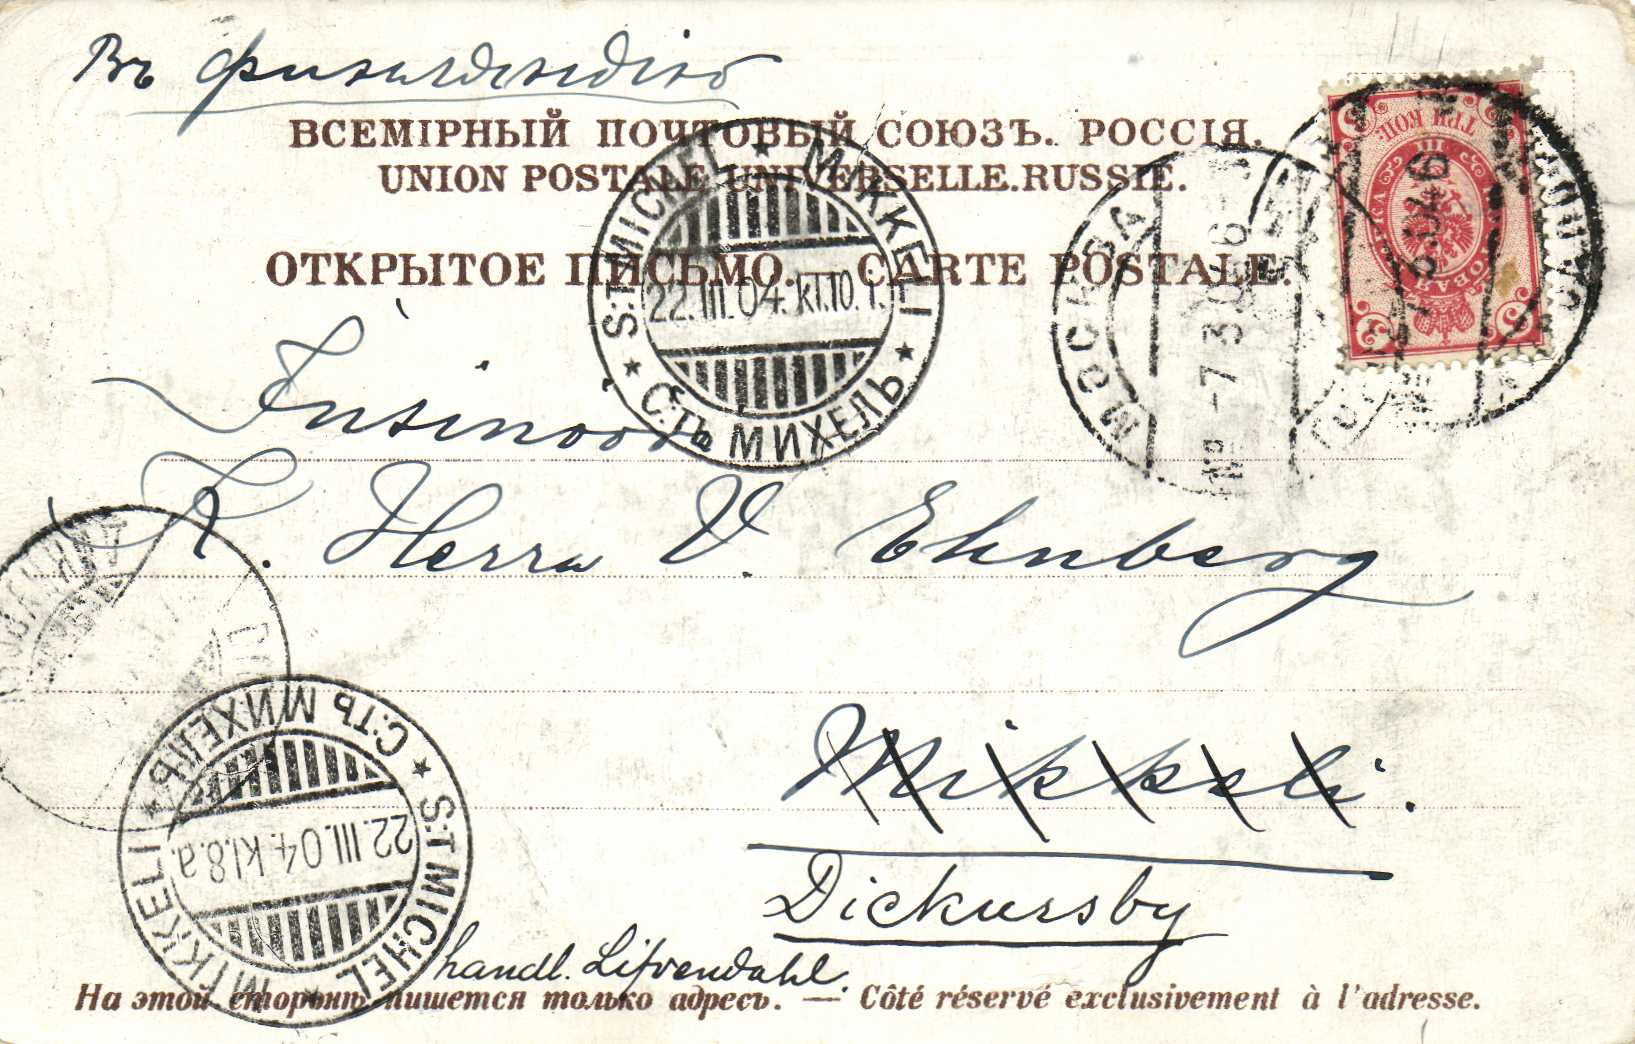 Въ Финляндію
ВСЕМІРНЫЙ ПОЧТОВЫЙ СОЮЗЪ. РОССІЯ.
UNION POSTALE UNIVERSELLE. RUSSIE.
ОТКРЫТОЕ ПИСЬМО. CARTE POSTALE.
ТРИ КОП.
III
МОСКВА
7 3 04
S:T MICHEL ★ MIKKELI ★ С:ТЬ МИХЕЛЬ ★
22.III.04. kl.10. f.
Insinööri
K. Herra V. Ehnberg
Mikkeli.
Dickursby
handl. Lifvendahl.
S:T MICHEL ★ MIKKELI ★ С:ТЬ МИХЕЛЬ ★
22.III.04. kl.8.a.
На этой сторонѣ пишется только адресъ. — Côté réservé exclusivement à l'adresse.